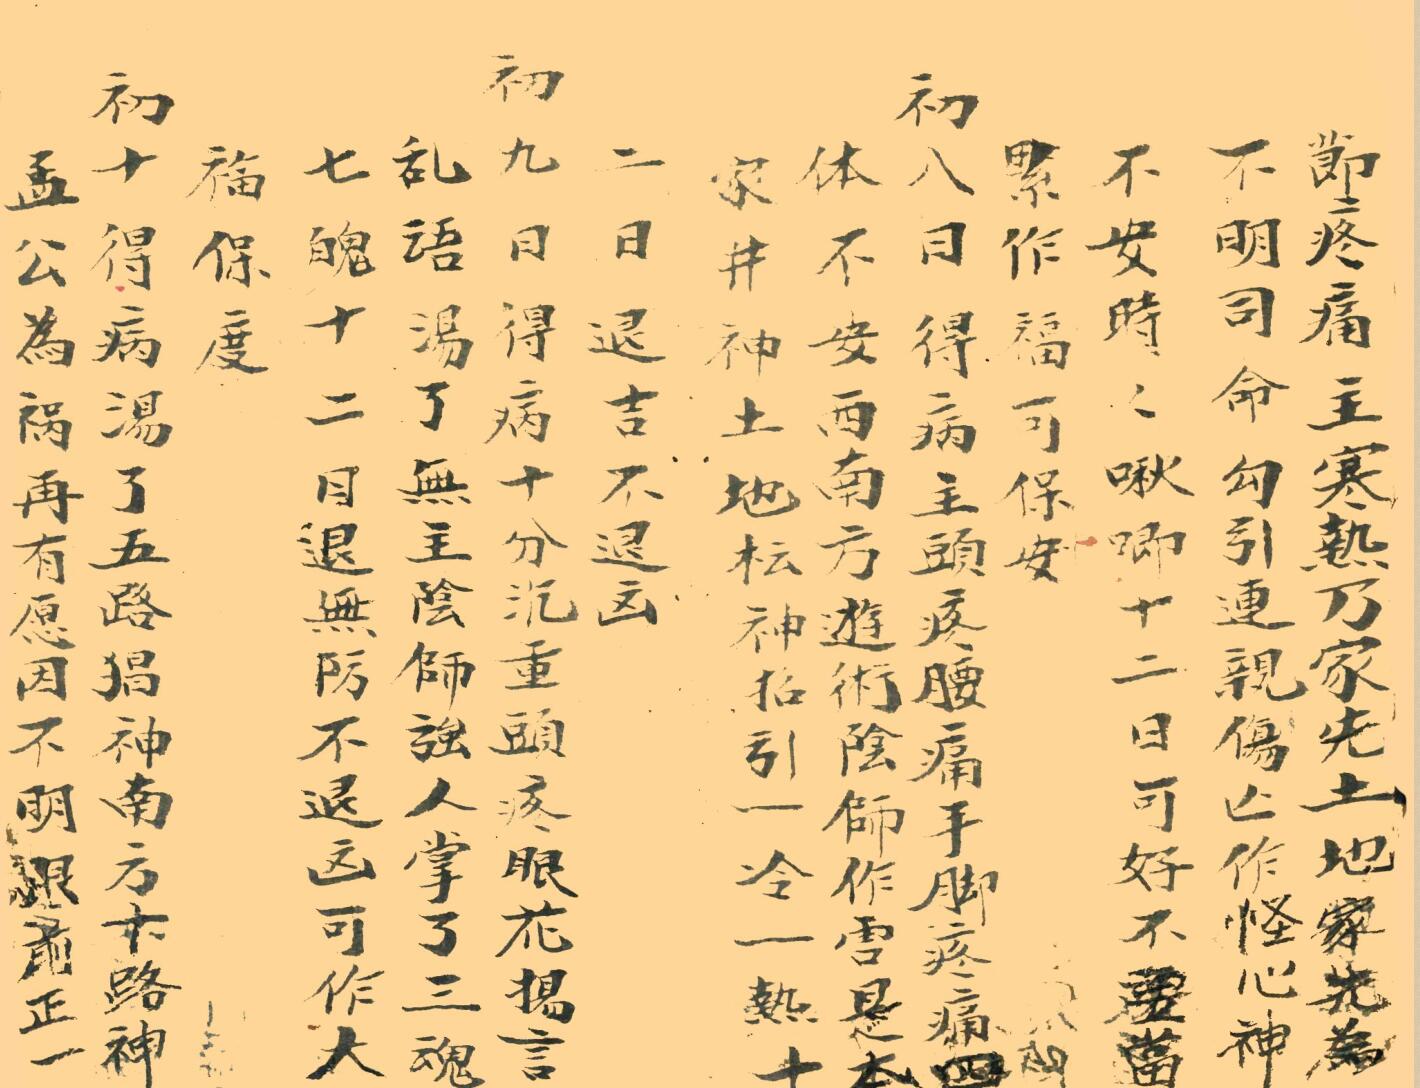 節疼痛主寒熱乃家先土地家先為
不明司命勾引連親傷亡作怪心神
不安時〻啾唧十二日可好不當
累作福可保安
初八日得病主頭疼腰痛手脚疼痛四
体不安西南方遊術陰師作是本
家井神土地枟神招引一冷一熱十
二日退吉不退凶
初九日得病十分沉重頭疼眼花揚言
乱語湯了無主陰師強人掌了三魂
七魄十二日退無防不退凶可作大
福保度
初十得病湯了五路猖神南方路神
孟公為禍再有愿因不明正一